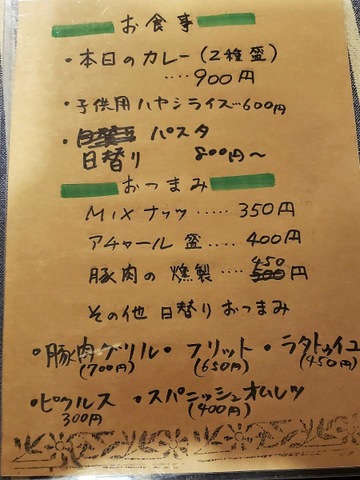 お食事
・本日のカレー(2種盛)
‥‥900円
・子供用ハヤシライス‥600円
・パスタ
日替り 800円〜
おつまみ
MIXナッツ‥‥‥350円
アチャール盛‥‥400円
450
豚肉の燻製‥‥500円
その他 日替りおつまみ
・豚肉グリル・フリット・ラタトゥイユ
(700円) (650円) (450円)
・ピクルス ・スパニッシュオムレツ
300円 (400円)